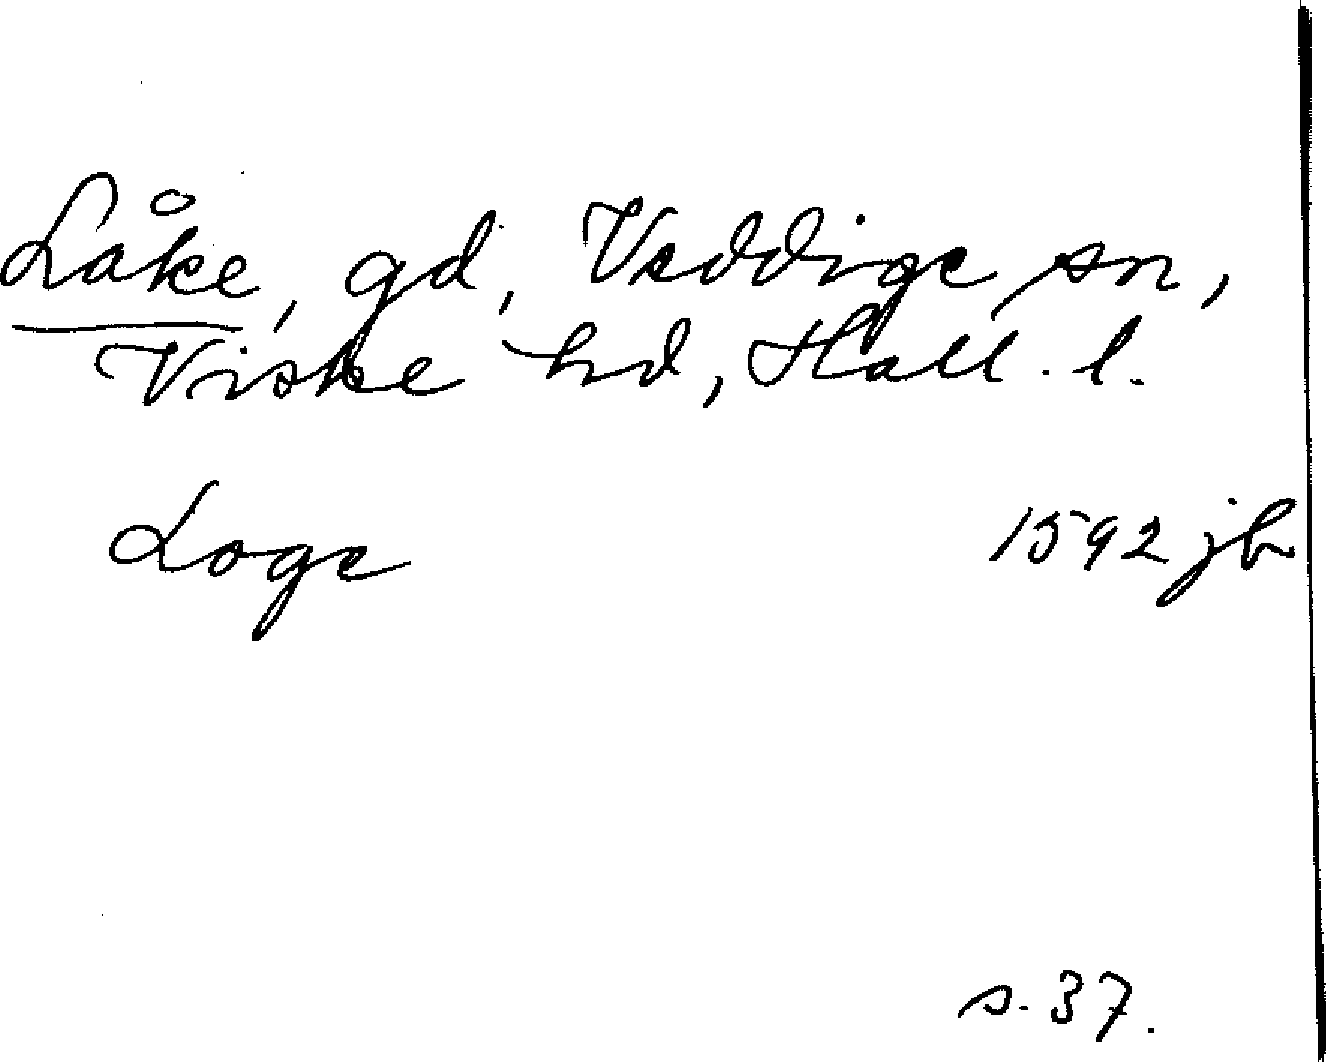 Låke, gd, Veddige sn,
Viske hd, Hall. l.
Loge 1592 jb
s. 37.